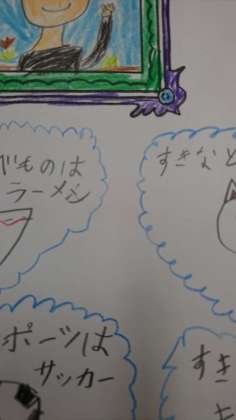 べものは
ラーメン
すきなど
ポーツは
サッカー
すき